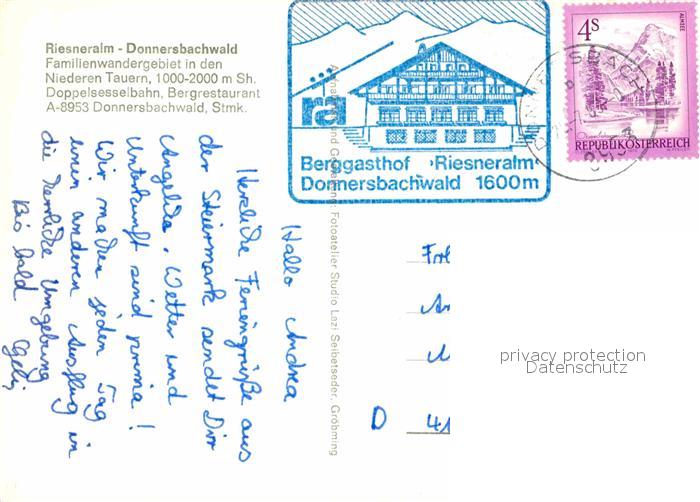 Riesneralm - Donnersbachwald
Familienwandergebiet in den
Niederen Tauern, 1000-2000 m Sh.
Doppelsesselbahn, Bergrestaurant
A-8953 Donnersbachwald, Stmk.
rä
Berggasthof ›Riesneralm‹
Donnersbachwald 1600m
4S
ALMSEE
REPUBLIK ÖSTERREICH
Fotoatelier Studio Lazi Seibetseder, Gröbming
Hallo Andrea
Herzliche Feriengrüße aus
der Steiermark sendet Dir
Angelika. Wetter und
Unterkunft sind prima!
Wir machen jeden Tag
einen anderen Ausflug in
die herrliche Umgebung
Bis bald
D
privacy protection
Datenschutz